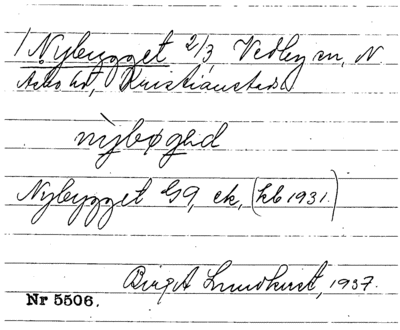 1 Nybygget 2/3, Vedby sn, N
Åsbo hd, Kristianstads l.
nỳbøgəd
Nybygget Gg, ek, (kb 1931.)
Birgit Lundkvist, 1937.
Nr 5506.